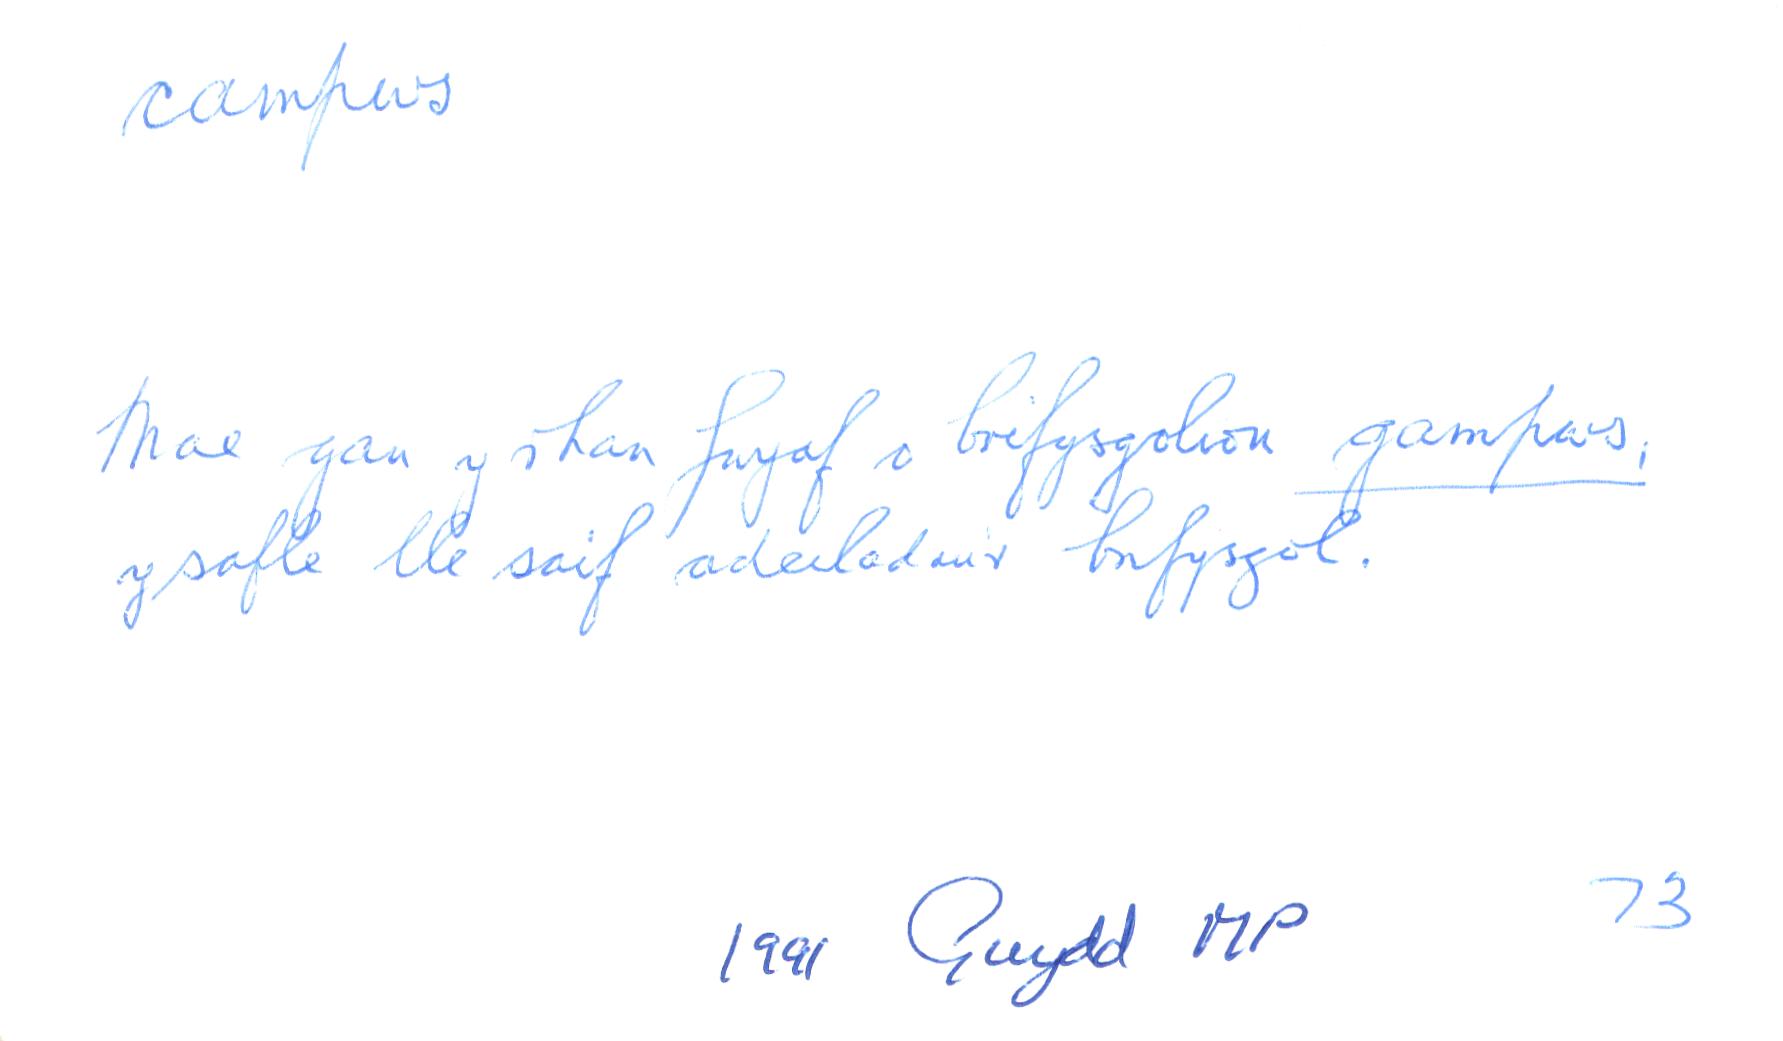 campws
Mae gan y rhan fwyaf o brifysgolion gampws,
y safle lle saif adeiladau'r brifysgol.
1991 Gwydd MP 73